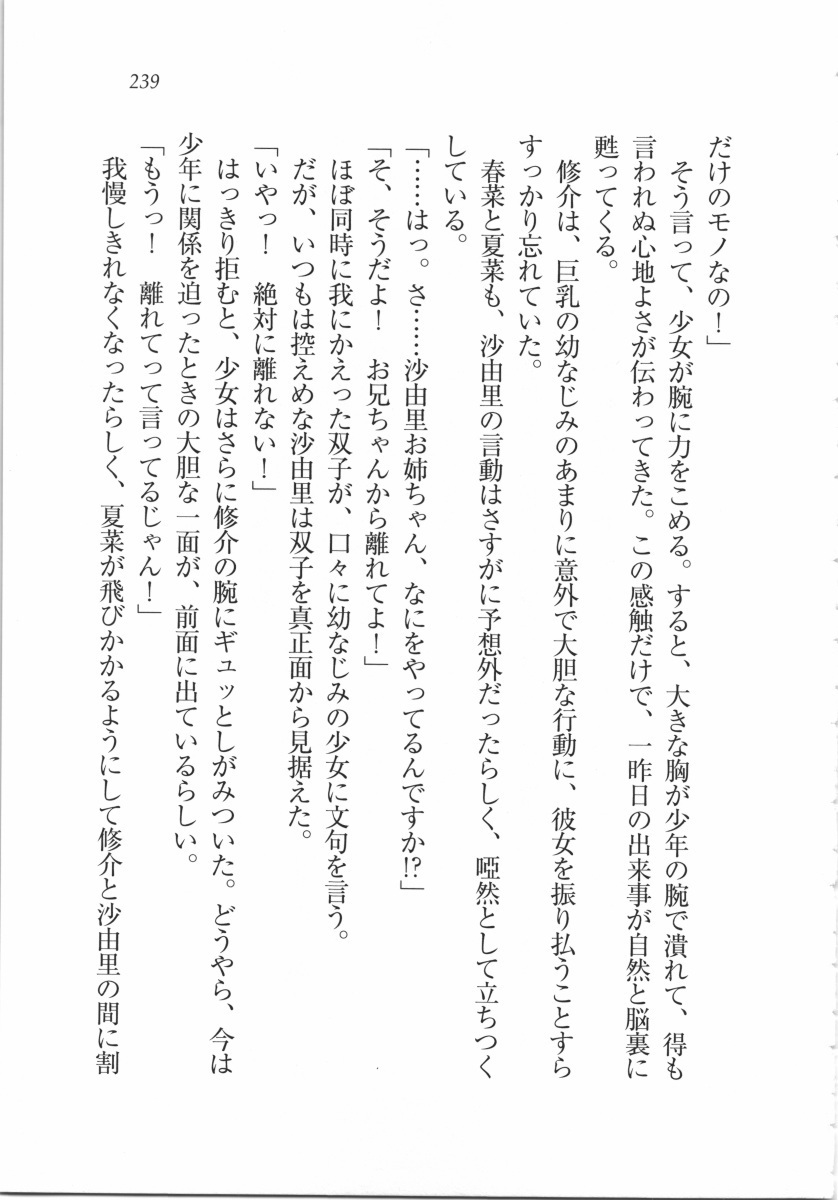 239
だけのモノなの！」
　そう言って、少女が腕に力をこめる。すると、大きな胸が少年の腕で潰れて、得も
言われぬ心地よさが伝わってきた。この感触だけで、一昨日の出来事が自然と脳裏に
甦ってくる。
　修介は、巨乳の幼なじみのあまりに意外で大胆な行動に、彼女を振り払うことすら
すっかり忘れていた。
　春菜と夏菜も、沙由里の言動はさすがに予想外だったらしく、啞然として立ちつく
している。
「……はっ。さ……沙由里お姉ちゃん、なにをやってるんですか!?」
「そ、そうだよ！　お兄ちゃんから離れてよ！」
　ほぼ同時に我にかえった双子が、口々に幼なじみの少女に文句を言う。
　だが、いつもは控えめな沙由里は双子を真正面から見据えた。
「いやっ！　絶対に離れない！」
　はっきり拒むと、少女はさらに修介の腕にギュッとしがみついた。どうやら、今は
少年に関係を迫ったときの大胆な一面が、前面に出ているらしい。
「もうっ！　離れてって言ってるじゃん！」
　我慢しきれなくなったらしく、夏菜が飛びかかるようにして修介と沙由里の間に割